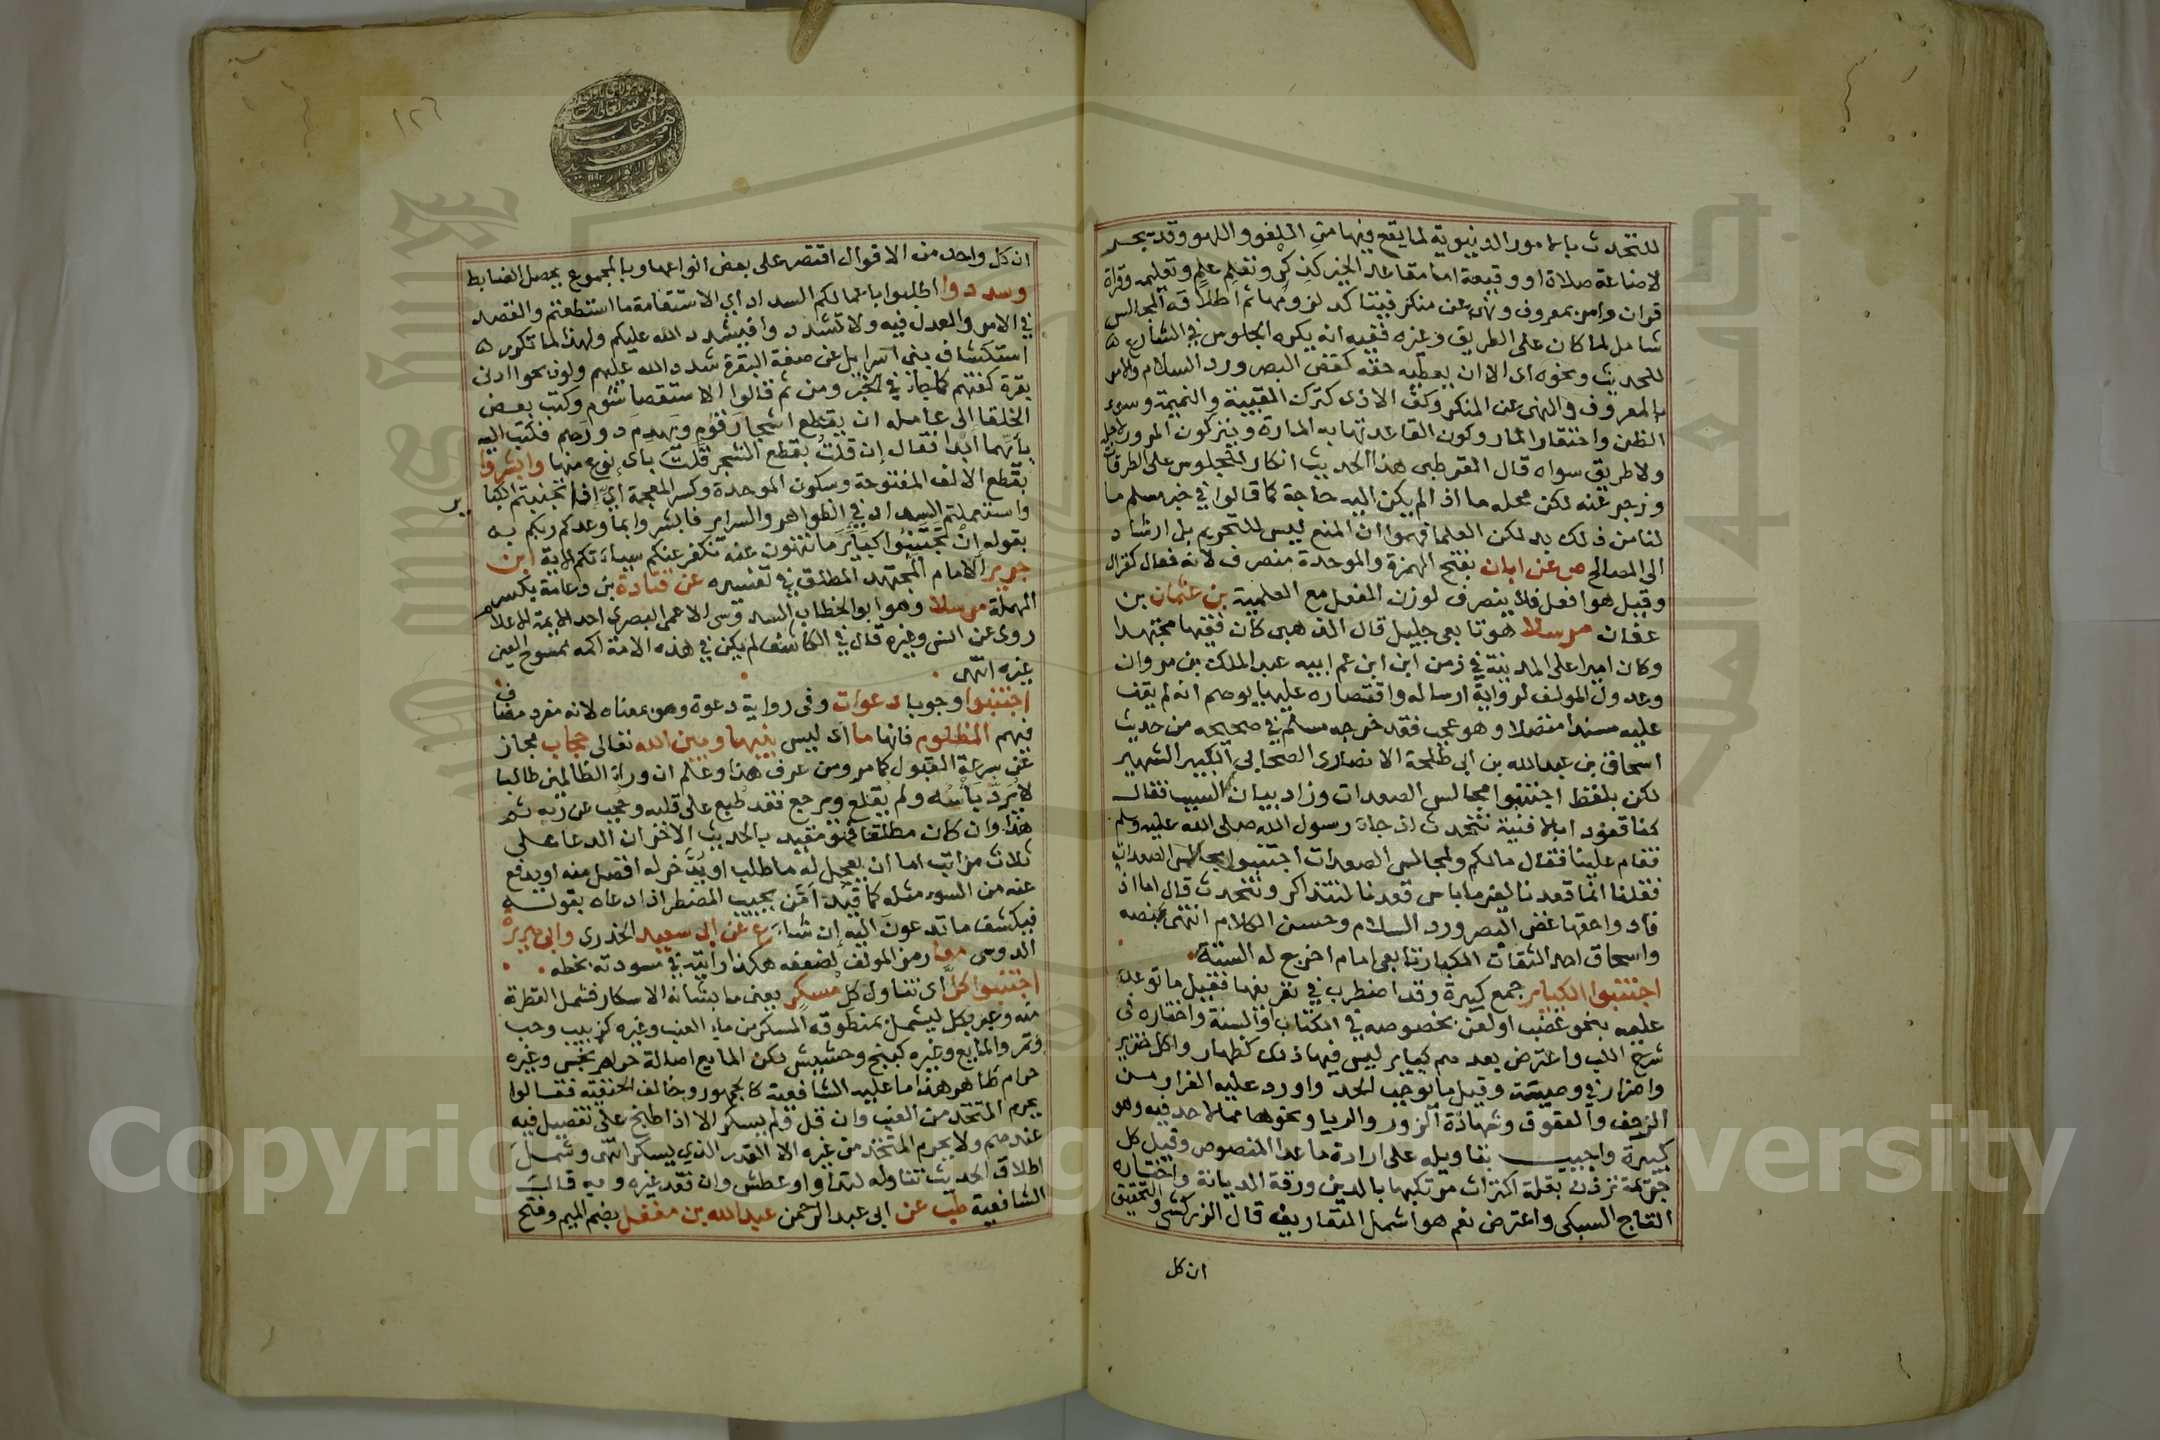 للتحدث بالامور الدنيوية لما يقع فيها من اللغو واللهو وقد يجر
لاضاعة صلاة او وقيعة اما مقاعد الخير كذكر وتعلم علم وتعليمه وقراة
قران وامر بمعروف ونهى عن منكر فيتاكد لزومها ثم اطلاقه المجالس
شامل لما كان على الطريق وغيره ففيه انه يكره الجلوس في الشارع
للحديث ونحوه اى الا ان يعطيه حقه كغض البصر ورد السلام والامر
بالمعروف والنهى عن المنكر وكف الاذى كترك الغيبة والنميمة وسوء
الظن واحتقار المار وكون القاعد تهابه المارة ويتركون المرور لاجله
ولا طريق سواه قال القرطبى هذا الحديث انكار للجلوس على الطرقات
وزجر عنه لكن محله ما اذا لم يكن اليه حاجة كما قالوا في خبر مسلم ما
لنا من ذلك بد لكن العلما فهموا ان المنع ليس للتحريم بل ارشاد
الى المصالح ص عن ابان بفتح الهمزة والموحدة منصرف لانه فعال كغزال
وقيل هو افعل فلا ينصرف لوزن الفعل مع العلمية بن عثمان بن
عفان مرسلا هو تابعى جليل قال الذهبى كان فقيها مجتهدا
وكان اميرا على المدينة في زمن ابن ابن عم ابيه عبد الملك بن مروان
وعدول المولف لرواية ارساله واقتصاره عليها يوهم انه لم يقف
عليه مسندا متصلا وهو عجب فقد خرجه مسلم في صحيحه من حديث
اسحاق بن عبد الله بن ابى طلحة الانصارى الصحابي الكبير الشهير
لكن بلفظ اجتنبوا مجالس الصعدات وزاد بيان السبب فقال
كنا قعودا بالافنية نتحدث اذ جاء رسول الله صلى الله عليه وسلم
فقام علينا فقال مالكم ولمجالس الصعدات اجتنبوا مجالس الصعدات
فقلنا انما قعدنا لغير ما باس قعدنا لنتذاكر ونتحدث قال اما اذ
فادوا حقها غض البصر ورد السلام وحسن الكلام انتهى بنصه
واسحاق احد الثقات الكبار تابعى امام اخرج له الستة
اجتنبوا الكباير جمع كبيرة وقد اضطرب في تعريفها فقيل ما توعد
عليه بنحو غضب او لعن بخصوصه في الكتاب او السنة واختاره فى
شرح اللب واعترض بعدهم كباير ليس فيها ذلك كظهار واكل خنزير
واضرار في وصية وقيل ما يوجب الحد واورد عليه الفرار من
الزحف والعقوق وشهادة الزور والربا ونحوها مما لا حد فيه وهو
كبيرة واجيب بتاويله على ارادة ما عدا المنصوص وقيل كل
جريمة توذن بقلة اكتراث مرتكبها بالدين ورقة الديانة واختاره
التاج السبكى واعترض نعم هو اشمل التعاريف قال الزركشى والتحقيق
ان كل
١٢٦
ان كل واحد من الاقوال اقتصر على بعض انواعها وبالمجموع يحصل الضابط
وسددوا اطلبوا باعمالكم السداد اي الاستقامة ما استطعتم والقصد
في الامر والعدل فيه ولا تشددوا فيشدد الله عليكم ولهذا لما تكرر
استكشاف بني اسرايل عن صفة البقرة شدد الله عليهم ولو ذبحوا ادنى
بقرة كفتهم كما جاء في الخبر ومن ثم قالوا الاستقصا شوم وكتب بعض
الخلفا إلى عامله ان يقطع اشجار قوم ويهدم دورهم فكتب اليه
بايهما ابدا فقال إن قلت بقطع الشجر قلت باى نوع منها وابشروا
بقطع الالف المفتوحة وسكون الموحدة وكسر المعجمة اي إذا تجنبتم الكبا
ير
واستعملتم السداد في الظواهر والسراير فابشروا بما وعدكم ربكم به
بقوله إن تجتنبوا كباير ما تنهون عنه نكفر عنكم سيئاتكم الاية ابن
جرير الامام المجتهد المطلق في تفسيره عن قتادة بن دعامة بكسر
المهملة مرسلا وهو ابو الخطاب السدوسى الاعمى البصرى احد الايمة الاعلا
روى عن انس وغيره قال في الكاشف لم يكن في هذه الامة اكمه ممسوح العين
غيره انتهى
اجتنبوا وجوبا دعوات وفى رواية دعوة وهو بمعناه لانه مفرد مضاف
فيهم المظلوم فانها ما اى ليس بينها وبين الله تعالى حجاب مجاز
عن سرعة القبول كما مر ومن عرف هذا وعلم ان وراء الظالمين طالبا
لا يرد باسه ولم يقلع ويرجع فقد طبع على قلبه وحجب عن ربه ثم
هذا وان كان مطلقا فهو مقيد بالحديث الاخر ان الدعا على
ثلاث مراتب اما ان يعجل له ما طلب او يدخر له افضل منه او يدفع
عنه من السوء مثله كما قيد امن يجيب المضطر اذا دعاه بقوله
فيكشف ما تدعون اليه إن شاء ع عن ابى سعيد الخدرى وابى هريرة
الدوسى معا رمز المولف لضعفه هكذا رايته في مسودته بخطه
اجتنبوا كل اى تناول كل مسكر يعنى ما بشانه الاسكار فشمل القطرة
منه وعبر بكل ليشمل بمنطوقه المسكر من ماء العنب وغيره كزبيب وحب
وتمر والمايع وغيره كبنج وحشيش لكن المايع اصالة حرام نجس وغيره
حرام طاهر هذا ما عليه الشافعية كالجمهور وخالف الحنفية فقالوا
يحرم المتخذ من العنب وان قل ولم يسكر الا اذا طبخ على تفصيل فيه
عندهم ولا يحرم المتخذ من غيره الا القدر الذي يسكر انتهى وشمل
اطلاق الحديث تناوله لتداو او عطش وان فقد غيره وبه قال
الشافعية طب عن ابى عبد الرحمن عبد الله بن مغفل بضم الميم وفتح